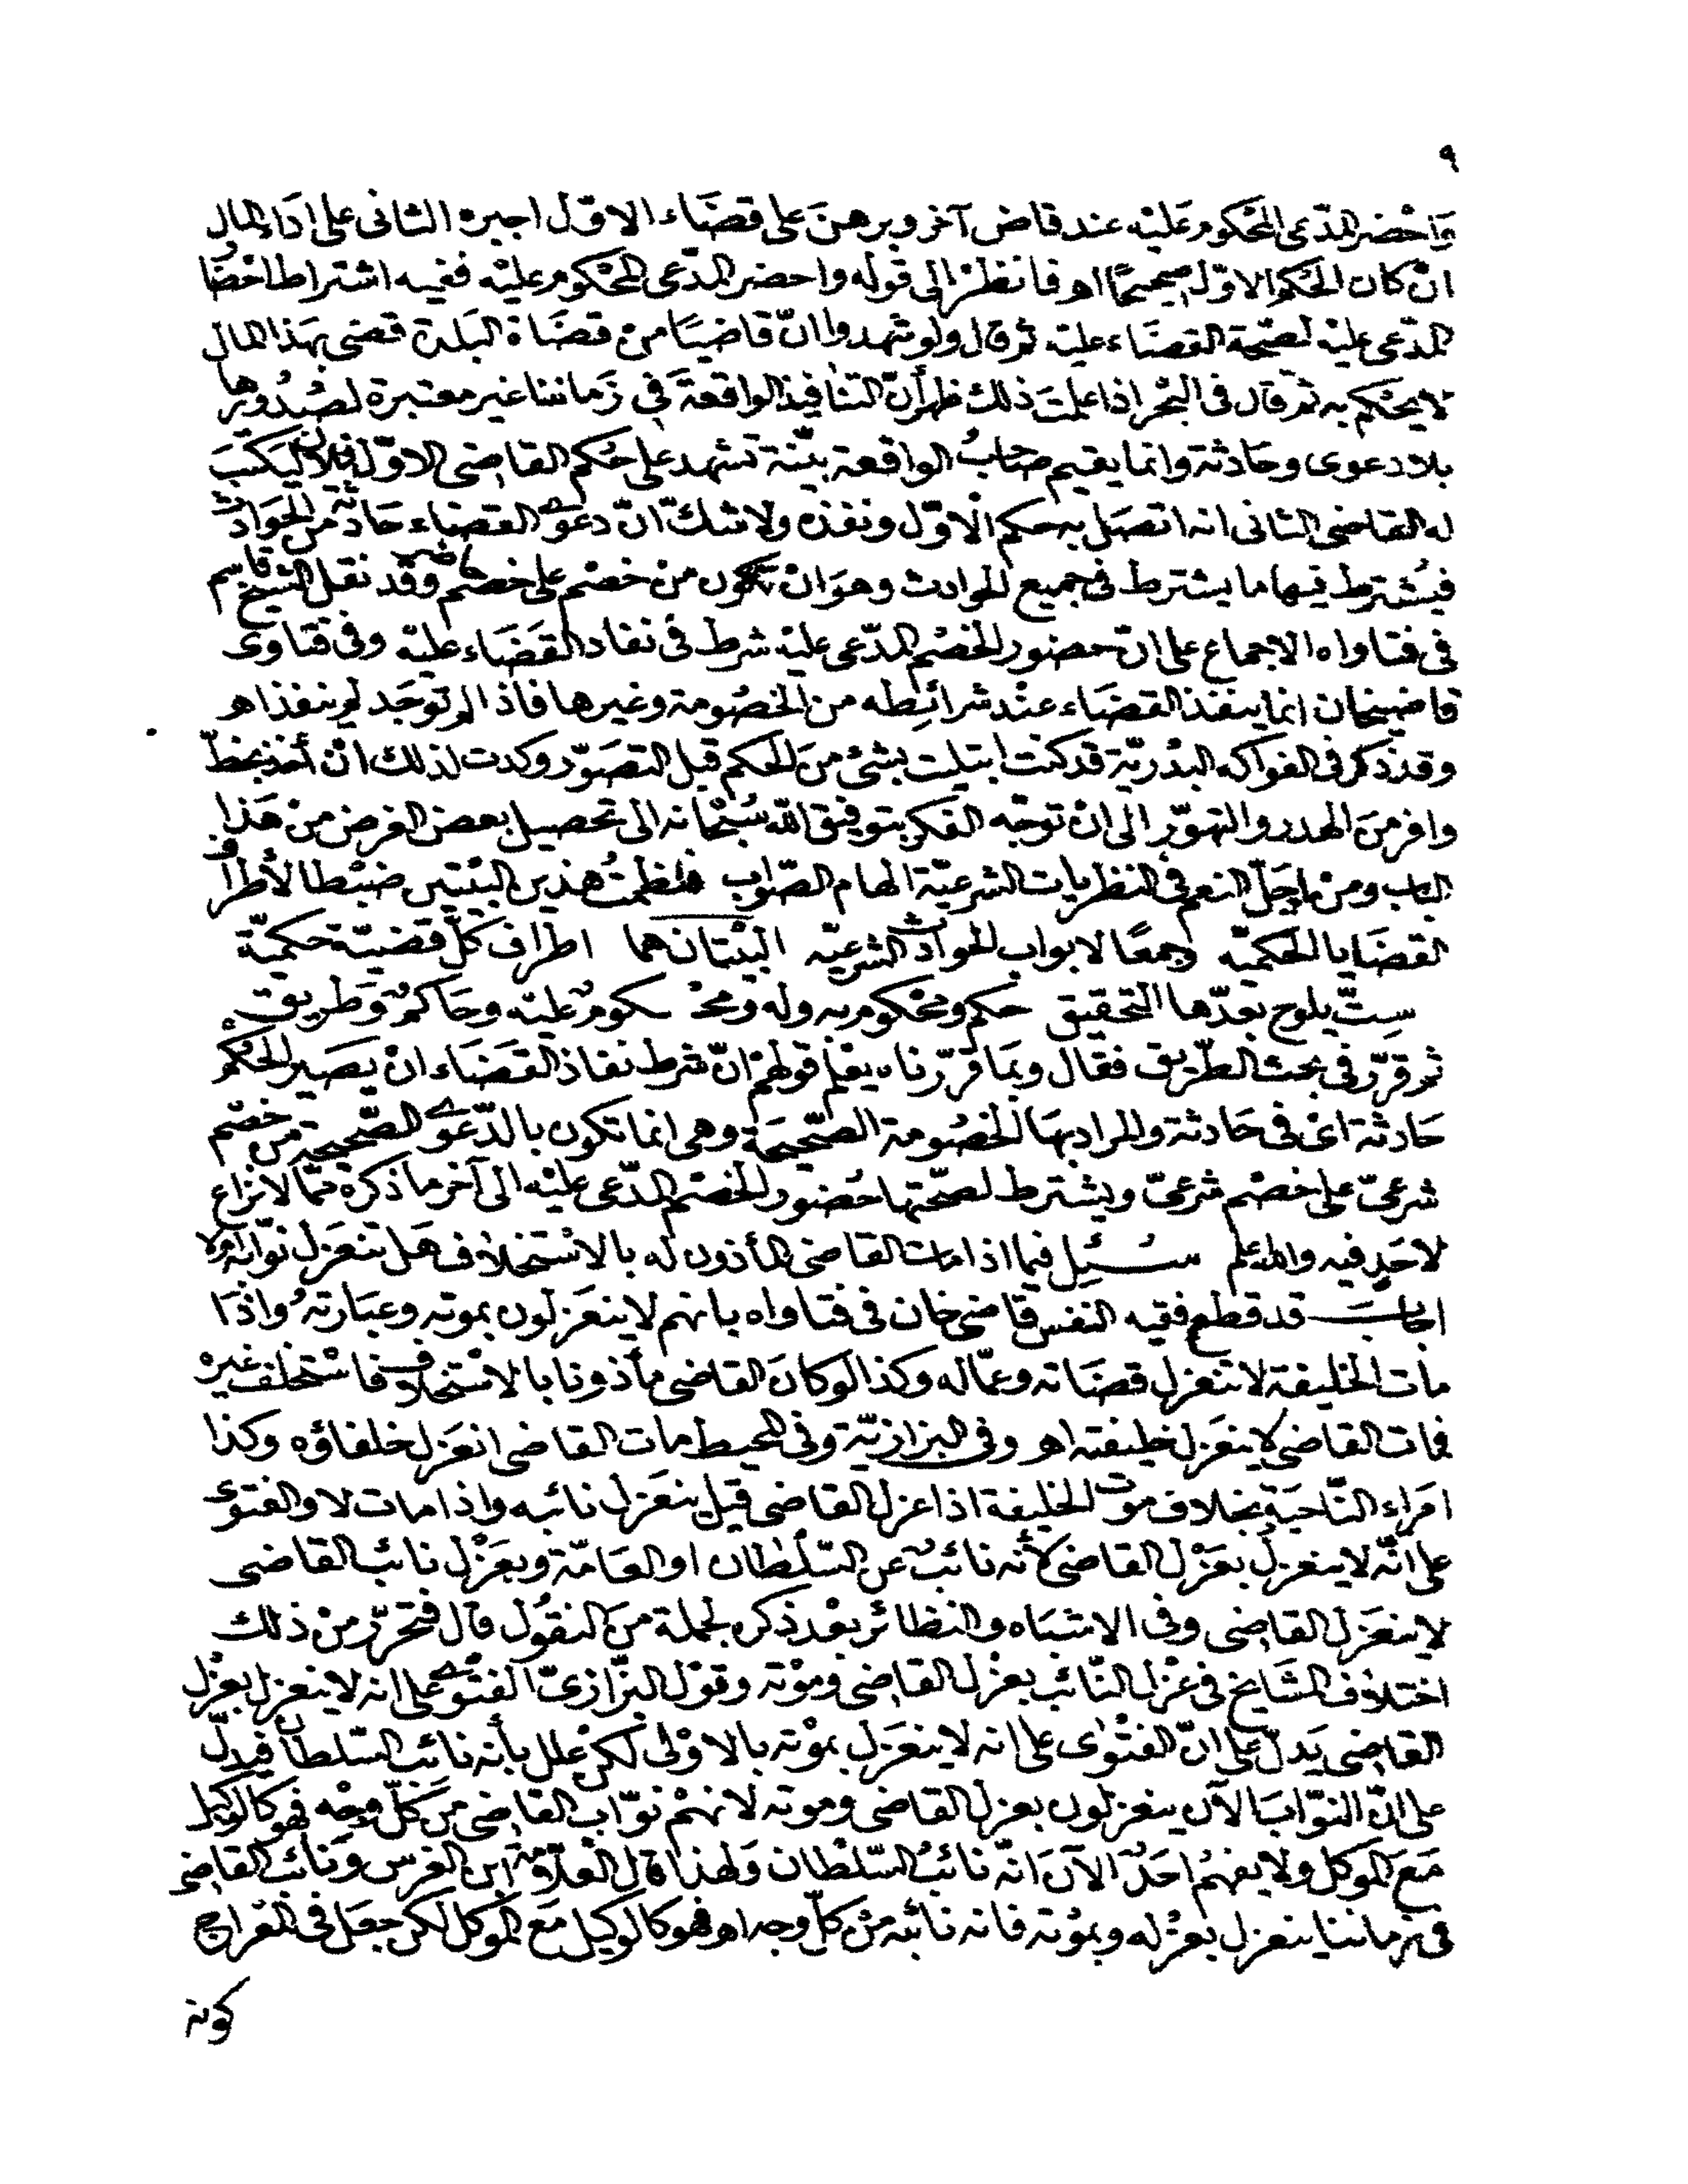 ٩
وَاحْضر المدّعى المحكوم عَليْه عند قاض آخر وبرهنَ على قضَاء الاوّل اجبره الثانى على ادَاء المال
انْ كان الحكم الاوّل صحيحًا اهـ فانظرْ الى قوله واحضر المدّعى المحْكوم عليْه ففيه اشتراط احْضَار
المدّعى عليْه لصحّة القضَاء عليْه ثم قال ولو شهدوا انّ قاضيًا من قضَاة البَلدة قضى بهَذا المال
لا يحْكم به ثم قال فى البحْر اذا علمت ذلك ظهر أنّ التنافيذ الواقعةَ في زَماننا غير معتبرة لصُدُورها
بلا دعوى وحَادثة وانما يقيم صَاحبُ الواقعة بيّنة تشهد على حُكم القاضى الاوّل فلان ليَكتبَ
له القاضى الثانى انه اتصَل به حكم الاوّل ونفذه ولا شكّ انّ دعوى القضاء حَادثة من الحوَادث
فيُشترط فيها ما يشترط فى جميع الحوادث وهوَ انْ تكون منْ خصْم على خصْم حاضر وقد نقل الشيخ قاسم
فى فتاواه الاجماع على انّ حضور الخصْم المدّعى عليْه شرط فى نفاد القَضَاء عليْه وفى فتاوى
قاضيخان انما ينفذ القضَاء عنْد شرائطه من الخصُومة وغيرها فاذا لم توجَد لم ينفذ اهـ
وقد ذكر فى الفواكه البدْريّة قد كنت ابتليت بشئ منَ الحكم قبل التصَوّر وكدت لذلك انْ أخذ بحظّ
وافر منَ الهدر والتهوّر الى انْ توجّه الفكر بتوفيق الله سُبْحانه الى تحصيل بعض الغرض منْ هَذا
الباب ومنْ اجَلّ النعم فى النظريات الشرعيّة الهام الصّواب فنظمتُ هذين البيْتين ضبْطا لأطراف
القضَايا الحكميّه وجمعًا لابواب الحوادث الشرعيّه البيْتان هما اطراف كلّ قضيّة حكميّة
ستّ يلوح بعدّها التحقيق حكم ومحْكوم به وله ومحْـ ـكومٌ عليْه وحَاكم وَطريق
ثم قرّر فى بحث الطّريق فقال وبمَا قرّرناه يعْلم قولهمْ انّ شرط نفاذ القَضَاء انْ يصَير الحكْم
حَادثة اىْ فى حَادثة والمراد بهَا الخصُومة الصّحيحَة وهى انما تكون بالدّعوَى الصّحيحة من خصْم
شرعىّ على خصْم شرعىّ ويشترط لصحّتها حُضور الخصْم المدّعى عليْه الى آخر ما ذكره ممّا لا نزاع
لاحَدٍ فيه والله اعلم سُـــئِل فيما اذا مات القاضى المأذون له بالاسْتخلاف هَل تنعَزل نوّابه ام لا
اجابَ قد قطع فقيه النفس قاضى خان فى فتاواه بانهم لا ينعَزلون بموته وعبَارتهُ واذَا
مات الخليفة لا تنعَزل قضَاته وعمّاله وكذا لو كانَ القاضى مأذونا بالاسْتخلاف فاسْتخلف غيره
فمات القاضى لا ينعَزل خليفته اهـ وفى البزازيّة وفى المحيط مات القاضى انعَزل خلفاؤه وكذا
امَراء النّاحيَة بخلاف موت الخليفة اذا عزل القاضى قيل ينعَزل نائبه واذا مات لا والفتوى
على انّه لا ينعزل بعَزْل القاضى لأنه نائبٌ عن السّلْطان او العَامّة وبعَزْل نائب القاضى
لا ينعَزل القاضى وفى الاشبَاه والنظائر بعْد ذكره لجملة منَ النقُول قال فتحَرّر منْ ذلك
اختلاف المشَايخ فى عزْل النّائب بعزْل القاضى وموْته وقوْل البزّازىّ الفتْوى على انه لا ينعزل بعزْل
القاضى يَدلّ على انّ الفتْوٰى على انه لا ينعَزل بموْته بالاوْلى لكنْ علل بأنه نائب السّلطان فيدلّ
على انّ النوّابَ الآن ينعَزلون بعزل القاضى وموته لانهمْ نوّاب القاضى منَ كلّ وجْه فهو كالوكيل
مَعَ الموكل ولا يفهمُ احَدٌ الآنَ انّه نائبُ السّلْطان وَلهذا قال العلّامة ابن الغرس وَنائب القاضى
فى زماننا ينعزل بعزْله وبموْته فانه نائبه منْ كلّ وجه اهـ فهو كالوكيل مَع الموكل لكن جعَل فى المعْراج
كونه